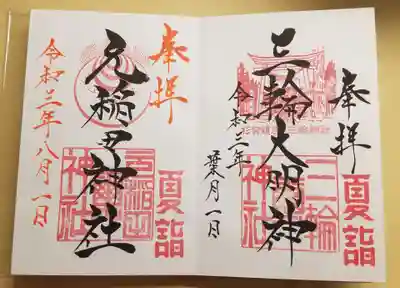 奉拝
三輪大明神
令和三年
葉月一日
三輪神社
夏詣
奉拝
元稲荷神社
令和三年八月一日
夏詣